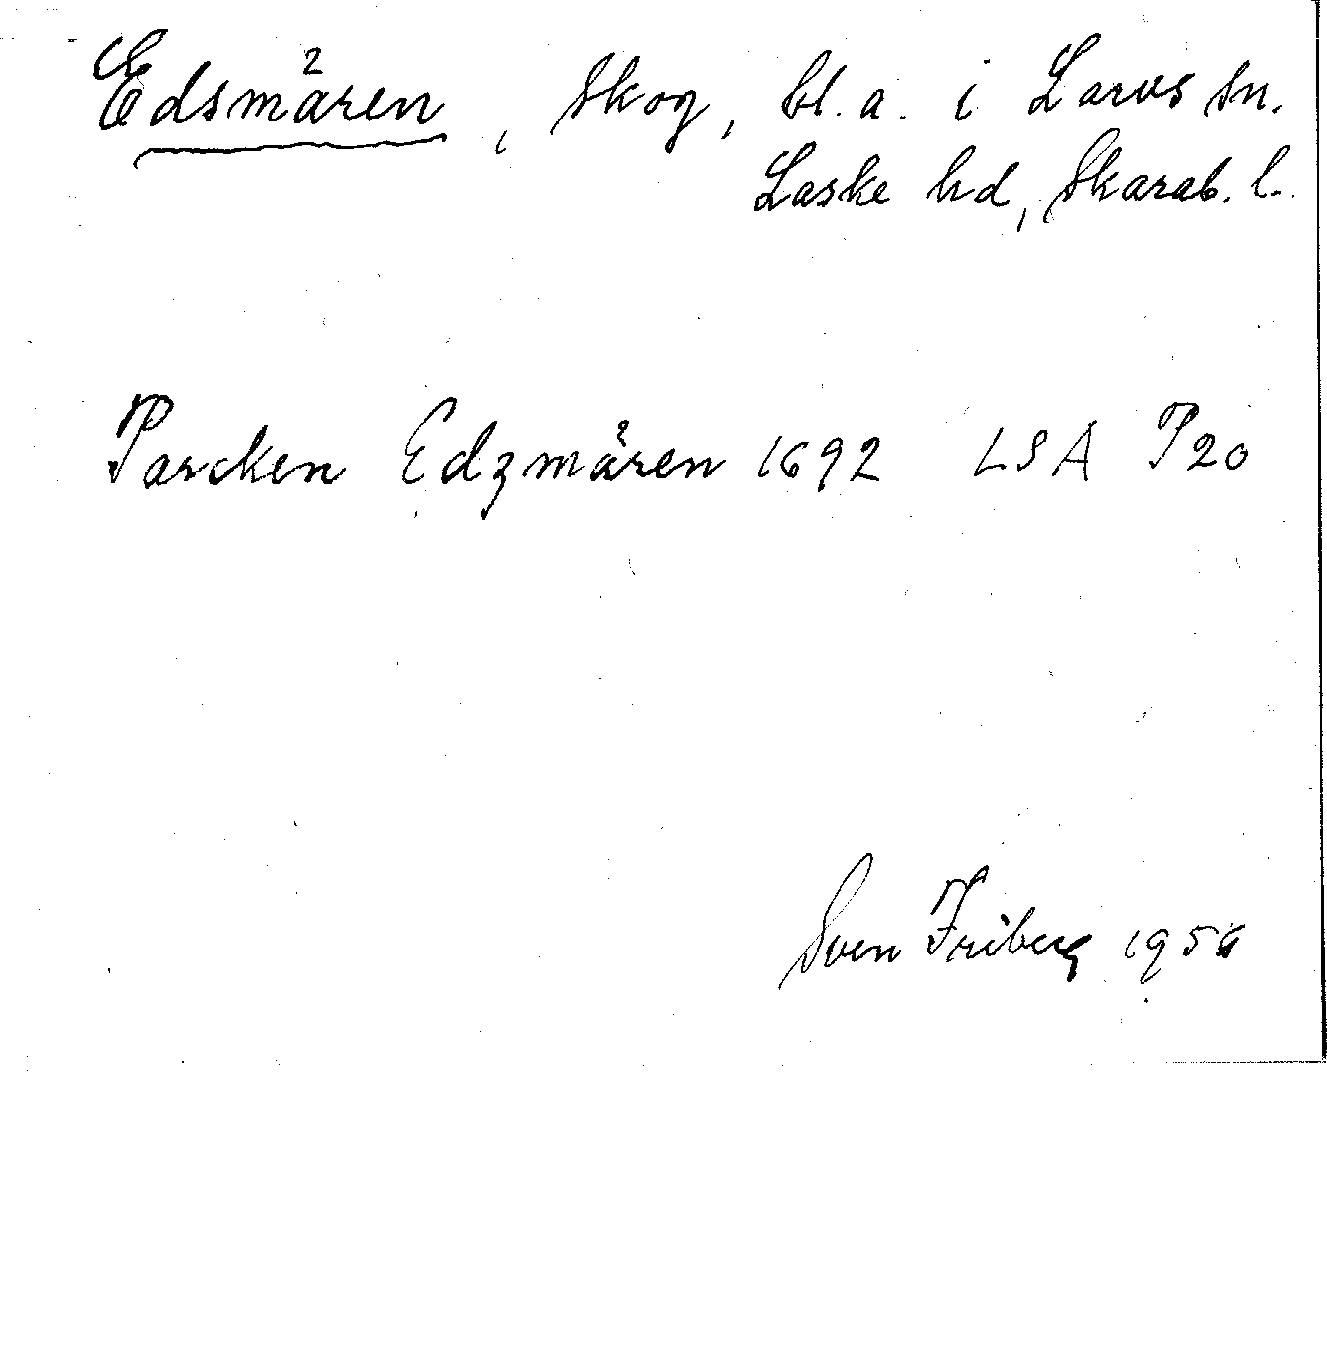 Edsmären, Skog, bl. a. i Larvs sn.
Laske hd, Skarab. l.
Parcken Edzmären 1692 LSA P20
Sven Friberg 1956